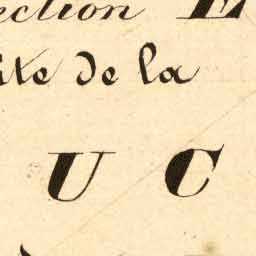 ection E
ite de la
U C